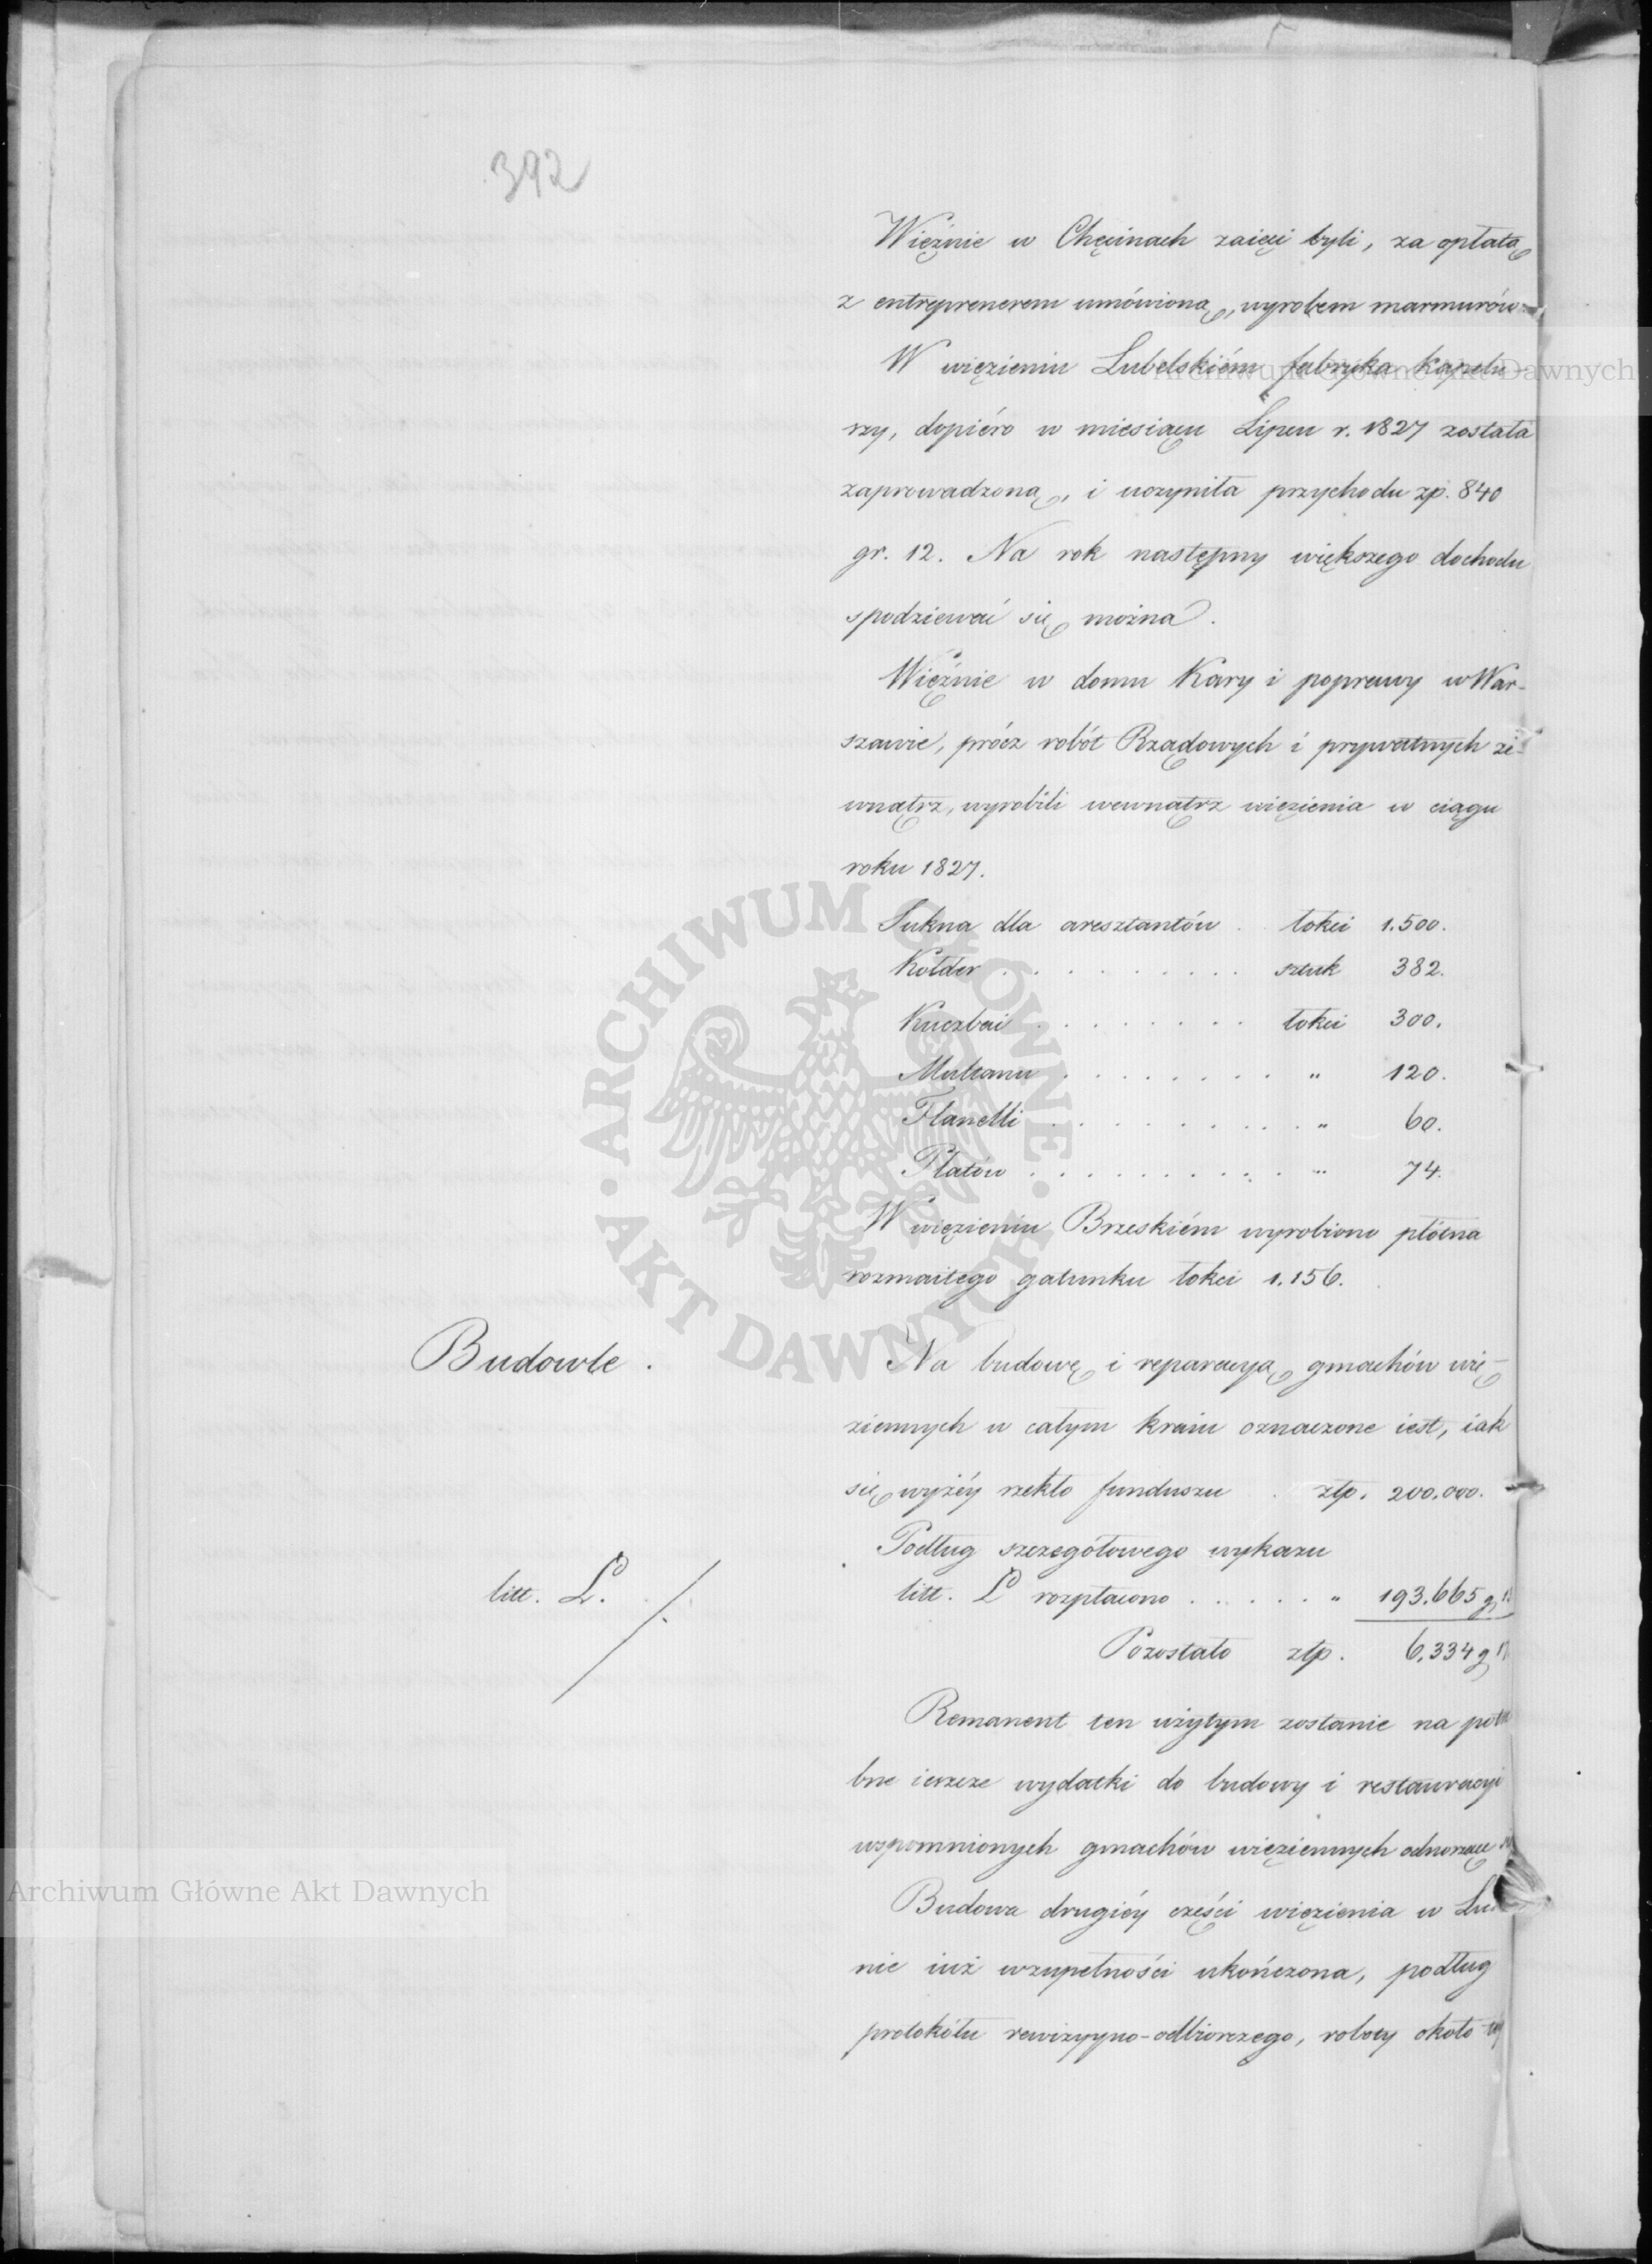 392
Więźnie w Chęcinach zaięci byli, za opłatą
z entreprenerem umówioną, wyrobem marmurów.
W więzieniu Lubelskiém fabryka kapelu-
rzy, dopiéro w miesiącu Lipcu r. 1827 została
zaprowadzoną, i uczyniła przychodu zp. 840
gr. 12. Na rok następny większego dochodu
spodziewać się można.
Więźnie w domu Kary i poprawy w War-
szawie, prócz robót Rządowych i prywatnych ze-
wnątrz, wyrobili wewnątrz więzienia w ciągu
roku 1827.
Sukna dla aresztantów . łokci 1.500.
Kołder . . . . . . . . . sztuk 382.
Kuczbai . . . . . . . . łokci 300.
Multanu . . . . . . . . " 120.
Flanelli . . . . . . . . . . " 60.
Płatów . . . . . . . . . . " 74.
W więzieniu Brzeskiém wyrobiono płótna
rozmaitego gatunku łokci 1.156.
Budowle.
Na budowę i reparacyą gmachów wię-
ziennych w całym kraiu oznaczone iest, iak
się wyżéy rzekło funduszu . złp. 200.000.
Podług szczegółowego wykazu
litt. L. litt. L rozpłacono . . . . . " 193.665 g
Pozostało złp. 6.334 g
Remanent ten użytym zostanie na potrze
bne ieszcze wydatki do budowy i restauracyi
wspomnionych gmachów więziennych odnoszące
Budowa drugiéy części więzienia w
nie iuż wzupełności ukończona, podług
protokółu rewizyyno-odbiorczego, roboty około
Archiwum Główne Akt Dawnych
Archiwum Główne Akt Dawnych
ARCHIWUM GŁÓWNE AKT DAWNYCH